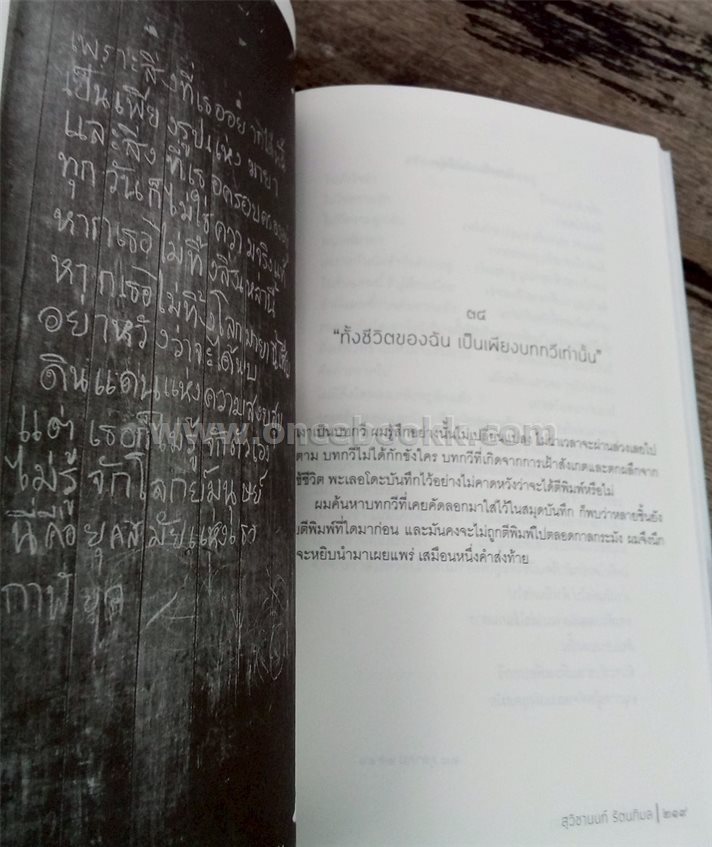 เพราะสิ่งที่เธออยากได้นั้น
เป็นเพียงรูปแห่งมายา
และสิ่งที่เธอครอบครอง
ทุกวันก็ไม่ใช่ความจริงแท้
หากเธอไม่ทิ้งสิ่งเหล่านี้
หากเธอไม่ทิ้งโลกมายา
อย่าหวังว่าจะได้พบ
ดินแดนแห่งความสงบ
แต่เธอก็ไม่รู้จักตัวเอง
ไม่รู้จักโลกย์มนุษย์
นี่คือยุคสมัยแห่งเธอ
กาฬยุค
๓๔
"ทั้งชีวิตของฉัน เป็นเพียงบทกวีเท่านั้น"
งาเป็นบทกวี ผมรู้สึกอย่างนั้นไม่เปลี่ยนแปลง ไม่ว่าเวลาจะผ่านล่วงเลยไป
ตาม บทกวีไม่ได้กักขังใคร บทกวีที่เกิดจากการเฝ้าสังเกตและตกผลึกจาก
ช้ชีวิต พะเลอโดะบันทึกไว้อย่างไม่คาดหวังว่าจะได้ตีพิมพ์หรือไม่
ผมค้นหาบทกวีที่เคยคัดลอกมาใส่ไว้ในสมุดบันทึก ก็พบว่าหลายชิ้นยัง
ยตีพิมพ์ที่ใดมาก่อน และมันคงจะไม่ถูกตีพิมพ์ไปตลอดกาลกระมัง ผมจึงนึก
จะหยิบนำมาเผยแพร่ เสมือนหนึ่งคำส่งท้าย
www.onceebookk.com
สุวิชานนท์ รัตนภิมล | ๒๑๙